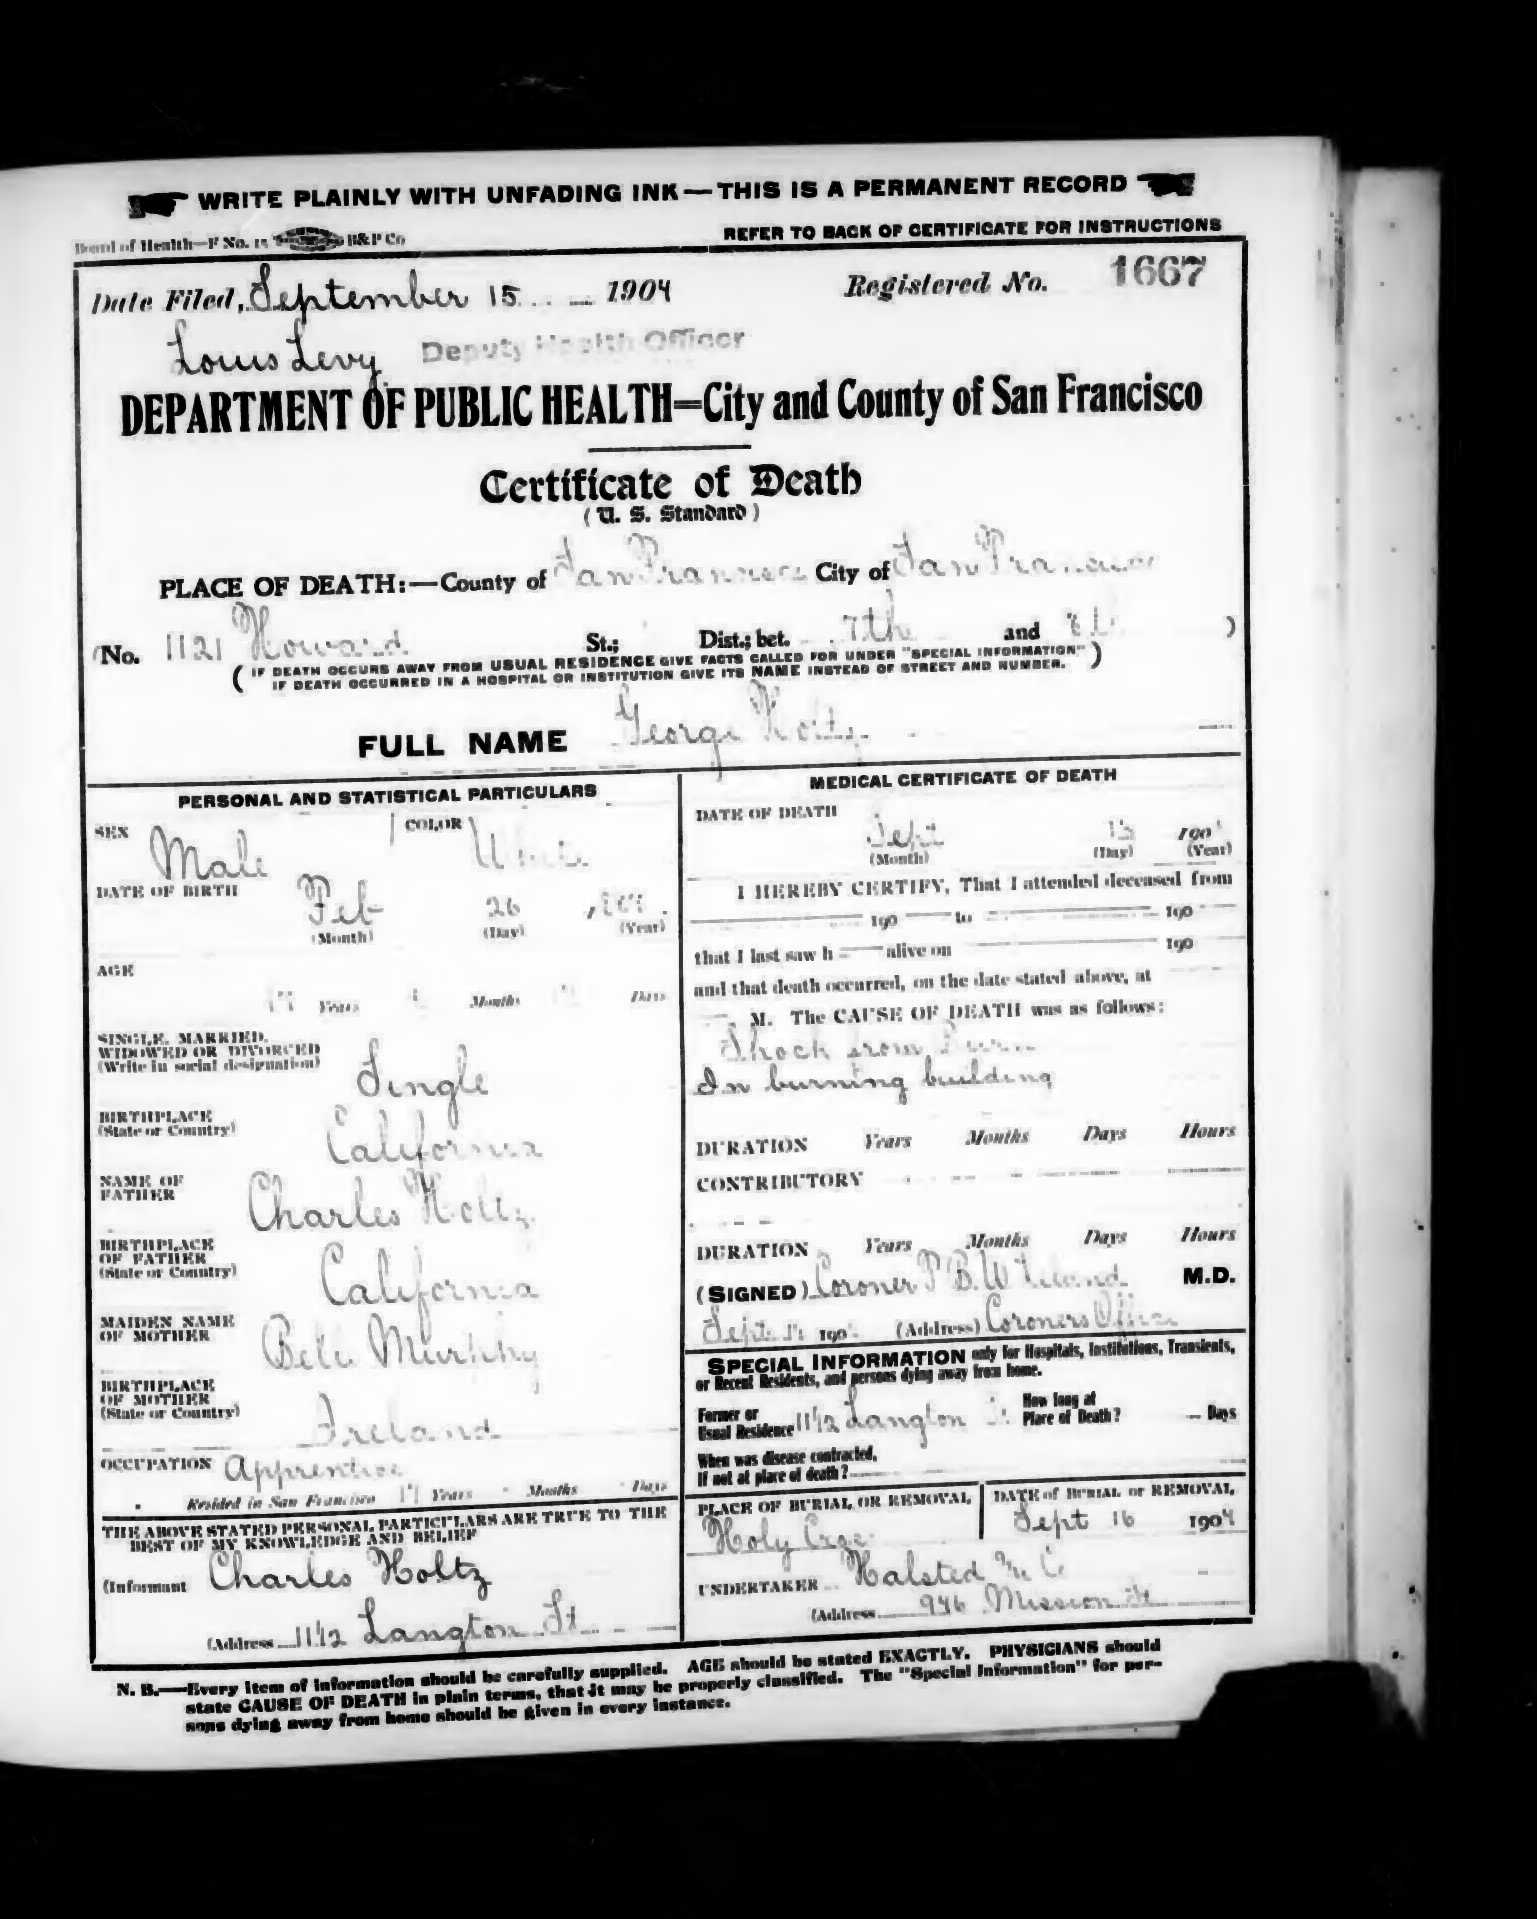 WRITE PLAINLY WITH UNFADING INK — THIS IS A PERMANENT RECORD
Board of Health—F No. 15 B&P Co
REFER TO BACK OF CERTIFICATE FOR INSTRUCTIONS
Date Filed, September 15 1904 Registered No. 1667
Louis Levy Deputy Health Officer
DEPARTMENT OF PUBLIC HEALTH=City and County of San Francisco
Certificate of Death
( U. S. Standard )
PLACE OF DEATH:—County of San Francisco City of San Francisco
(No. 1121 Howard St.; Dist.; bet. 7th and 8th )
( IF DEATH OCCURS AWAY FROM USUAL RESIDENCE GIVE FACTS CALLED FOR UNDER "SPECIAL INFORMATION" )
IF DEATH OCCURRED IN A HOSPITAL OR INSTITUTION GIVE ITS NAME INSTEAD OF STREET AND NUMBER.
FULL NAME George Holtz
PERSONAL AND STATISTICAL PARTICULARS
SEX Male COLOR White
DATE OF BIRTH Feb 26
(Month) (Day) (Year)
AGE
17 Years Months Days
SINGLE, MARRIED,
WIDOWED OR DIVORCED
(Write in social designation)
Single
BIRTHPLACE
(State or Country)
California
NAME OF
FATHER
Charles Holtz
BIRTHPLACE
OF FATHER
(State or Country)
California
MAIDEN NAME
OF MOTHER
Belle Murphy
BIRTHPLACE
OF MOTHER
(State or Country)
Ireland
OCCUPATION Apprentice
Resided in San Francisco 17 Years Months Days
THE ABOVE STATED PERSONAL PARTICULARS ARE TRUE TO THE
BEST OF MY KNOWLEDGE AND BELIEF
(Informant Charles Holtz
(Address 11½ Langton St
MEDICAL CERTIFICATE OF DEATH
DATE OF DEATH
Sept 13 190
(Month) (Day) (Year)
I HEREBY CERTIFY, That I attended deceased from
190 to 190
that I last saw h alive on 190
and that death occurred, on the date stated above, at
M. The CAUSE OF DEATH was as follows:
Shock from Burns
In burning building
DURATION Years Months Days Hours
CONTRIBUTORY
DURATION Years Months Days Hours
(SIGNED) Coroner B. W. Leland M.D.
Sept 190 (Address) Coroners Office
SPECIAL INFORMATION only for Hospitals, Institutions, Transients,
or Recent Residents, and persons dying away from home.
Former or
Usual Residence 11½ Langton St
How long at
Place of Death? Days
When was disease contracted,
If not at place of death?
PLACE OF BURIAL OR REMOVAL
Holy Cross
DATE of BURIAL or REMOVAL
Sept 16 1904
UNDERTAKER Halsted & Co
(Address 946 Mission St
N. B.—Every item of information should be carefully supplied. AGE should be stated EXACTLY. PHYSICIANS should
state CAUSE OF DEATH in plain terms, that it may be properly classified. The "Special Information" for per-
sons dying away from home should be given in every instance.